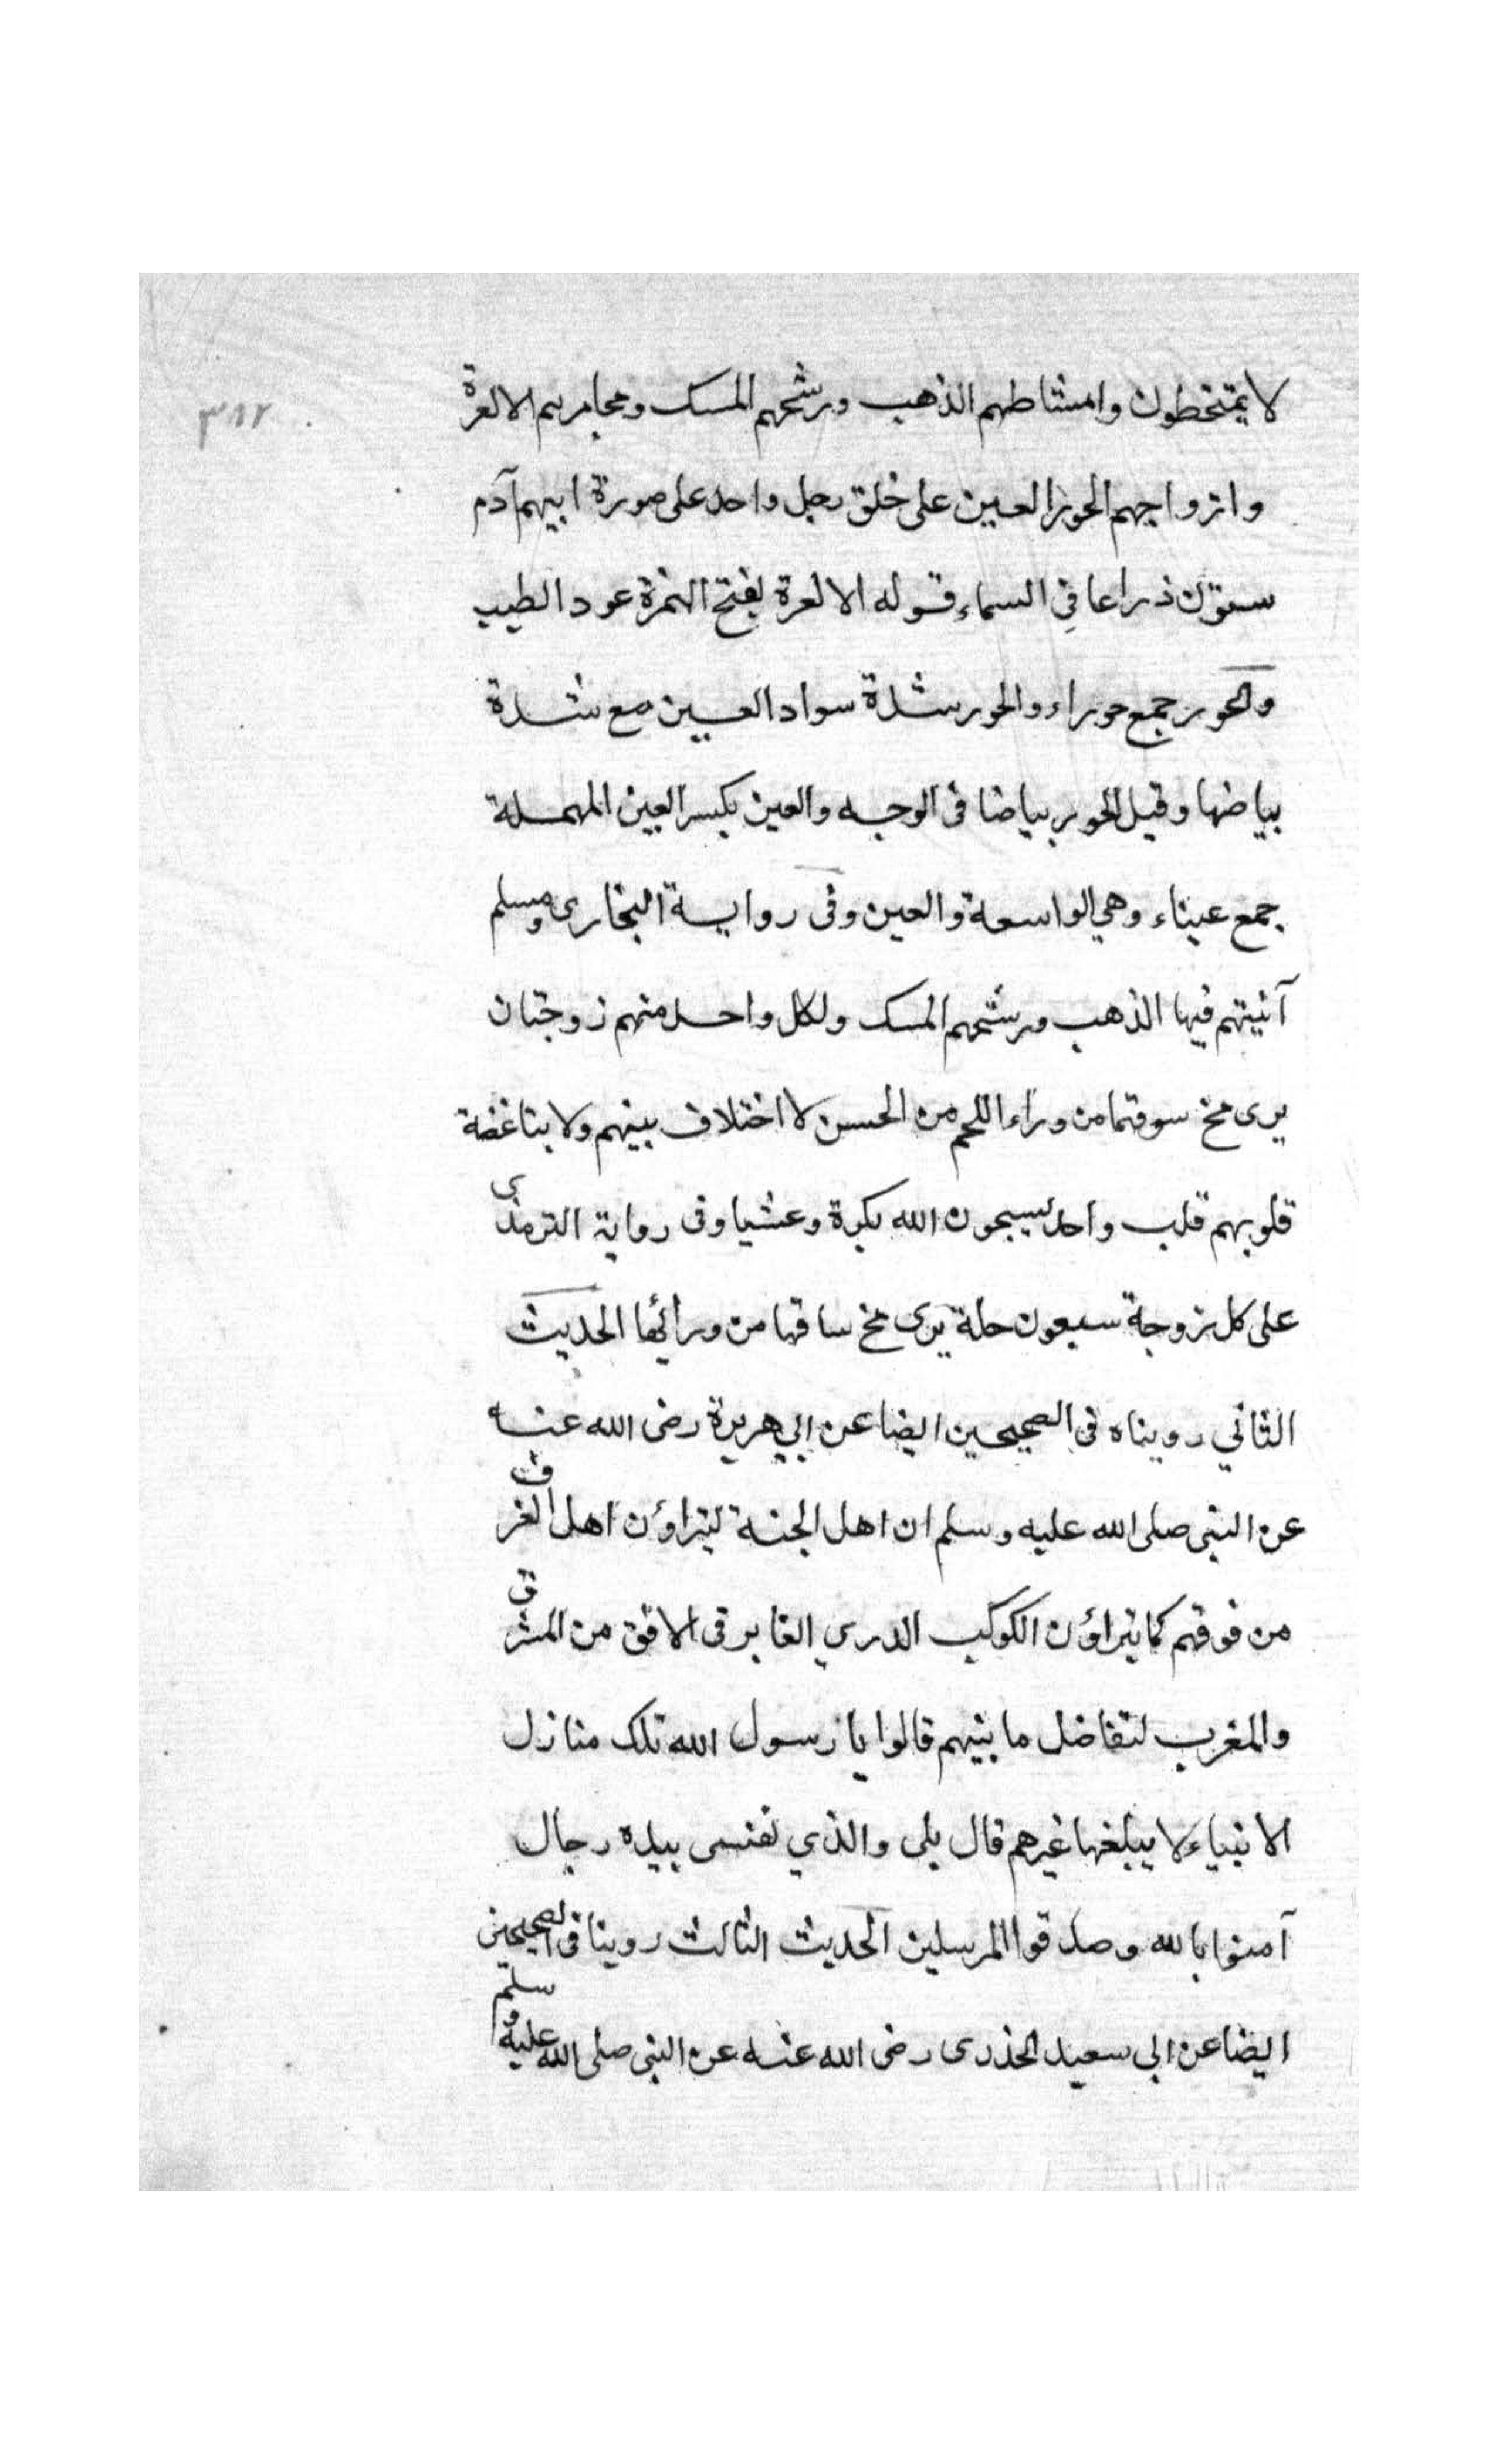 لا يمتخطون وامشاطهم الذهب ورشحهم المسك ومجامرهم الالعرة
وازواجهم الحور العين على خلق رجل واحد على صورة ابيهم آدم
ستون ذراعا في السماء قوله الالعرة بفتح الهمزة عود الطيب
والحور جمع حوراء والحور شدة سواد العين مع شدة
بياضها وقيل الحور بياضا فى الوجه والعين بكسر العين المهملة
جمع عيناء وهي الواسعة والعين وفى رواية البخارى ومسلم
آنيتهم فيها الذهب ورشحهم المسك ولكل واحد منهم زوجتان
يرى مخ سوقتما من وراء اللحم من الحسن لا اختلاف بينهم ولا بتاغضة
قلوبهم قلب واحد يسبحون الله بكرة وعشيا وفى رواية الترمذى
على كل زوجة سبعون حلة يرى مخ ساقها من ورائها الحديث
الثاني رويناه فى الصحيحين ايضا عن ابي هريرة رضى الله عنه
عن النبى صلى الله عليه وسلم ان اهل الجنة ليتراؤن اهل الغرف
من فوقهم كما يتراؤن الكوكب الدري الغابر فى الافق من المشرق
والمغرب لتفاضل ما بينهم قالوا يا رسول الله تلك منازل
الانبياء لا يبلغها غيرهم قال بلى والذي نفسى بيده رجال
آمنوا بالله وصدقوا المرسلين الحديث الثالث روينا فى الصحيحين
ايضا عن ابى سعيد الخذرى رضى الله عنه عن النبى صلى الله عليه وسلم
٣٨٢